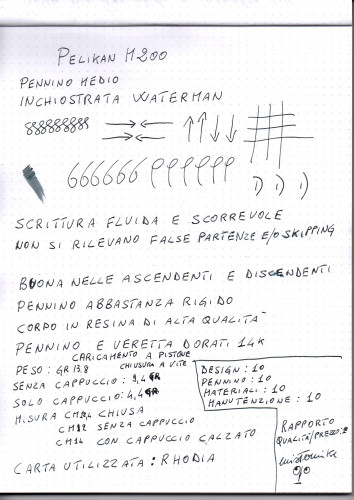 PELIKAN M200
PENNINO MEDIO
INCHIOSTRATA WATERMAN
SCRITTURA FLUIDA E SCORREVOLE
NON SI RILEVANO FALSE PARTENZE E/O SKIPPING
BUONA NELLE ASCENDENTI E DISCENDENTI
PENNINO ABBASTANZA RIGIDO
CORPO IN RESINA DI ALTA QUALITA'
PENNINO E VERETTA DORATI 14K
CARICAMENTO A PISTONE
CHIUSURA A VITE
PESO: GR 13,8
SENZA CAPPUCCIO: 9,4 GR
SOLO CAPPUCCIO: 4,4 GR
MISURA CHIUSA
CM 12 SENZA CAPPUCCIO
CON CAPPUCCIO CALZATO
CARTA UTILIZZATA: RHODIA
DESIGN: 10
PENNINO: 10
MATERIALI: 10
MANUTENZIONE: 10
RAPPORTO
QUALITÀ/PREZZO: